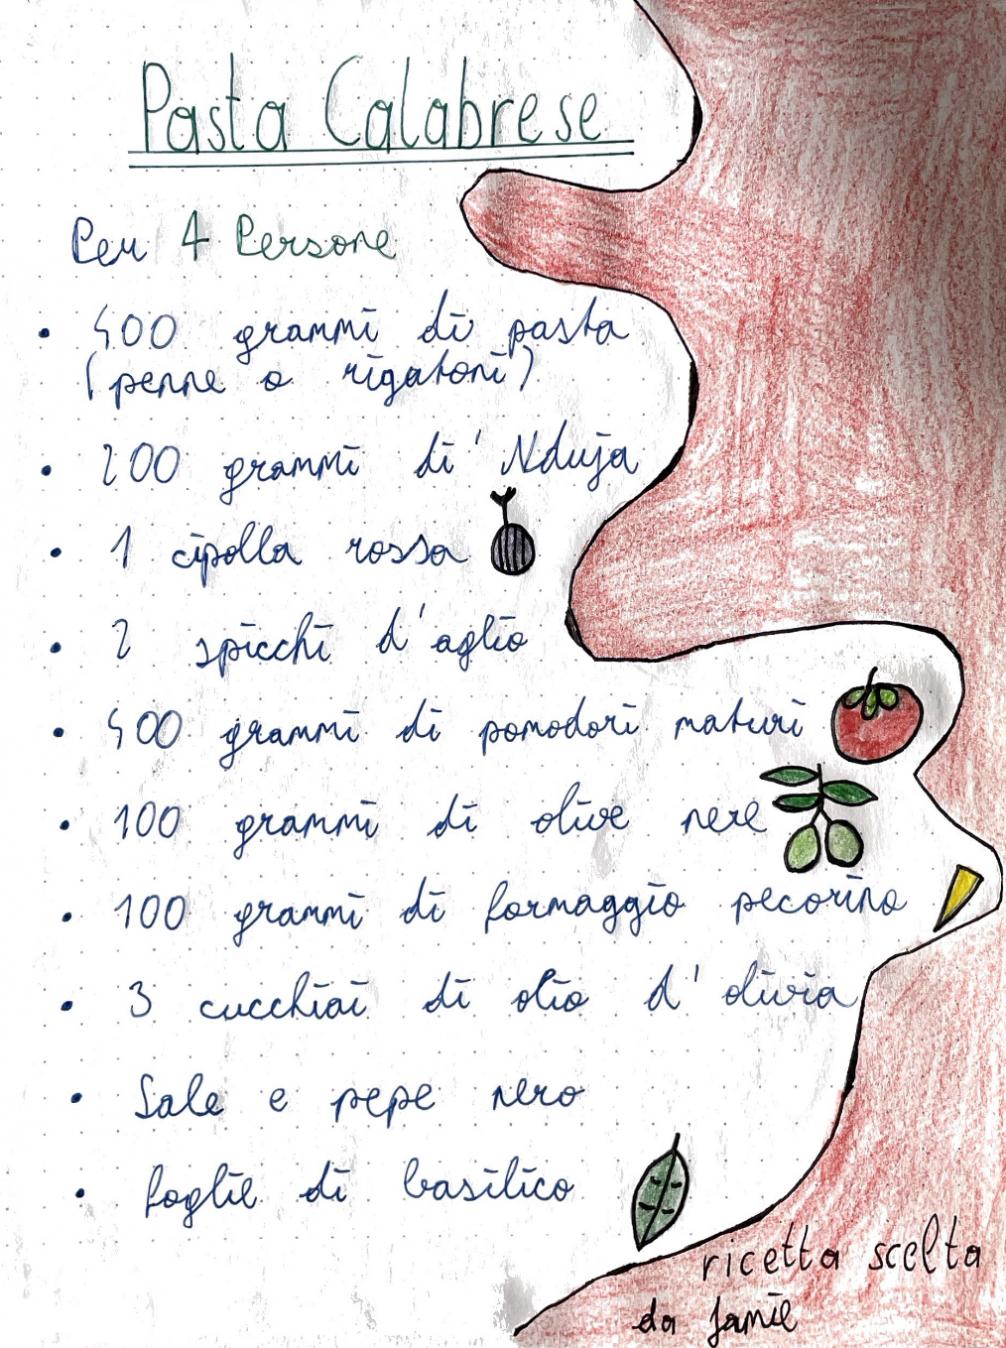 Pasta Calabrese
Per 4 Persone
• 400 grammi di pasta
(penne o rigatoni)
• 200 grammi di 'Nduja
• 1 cipolla rossa
• 2 spicchi d'aglio
• 400 grammi di pomodori maturi
• 100 grammi di olive nere
• 100 grammi di formaggio pecorino
• 3 cucchiai di olio d'olivia
• Sale e pepe nero
• foglie di basilico
ricetta scelta
da Jamie